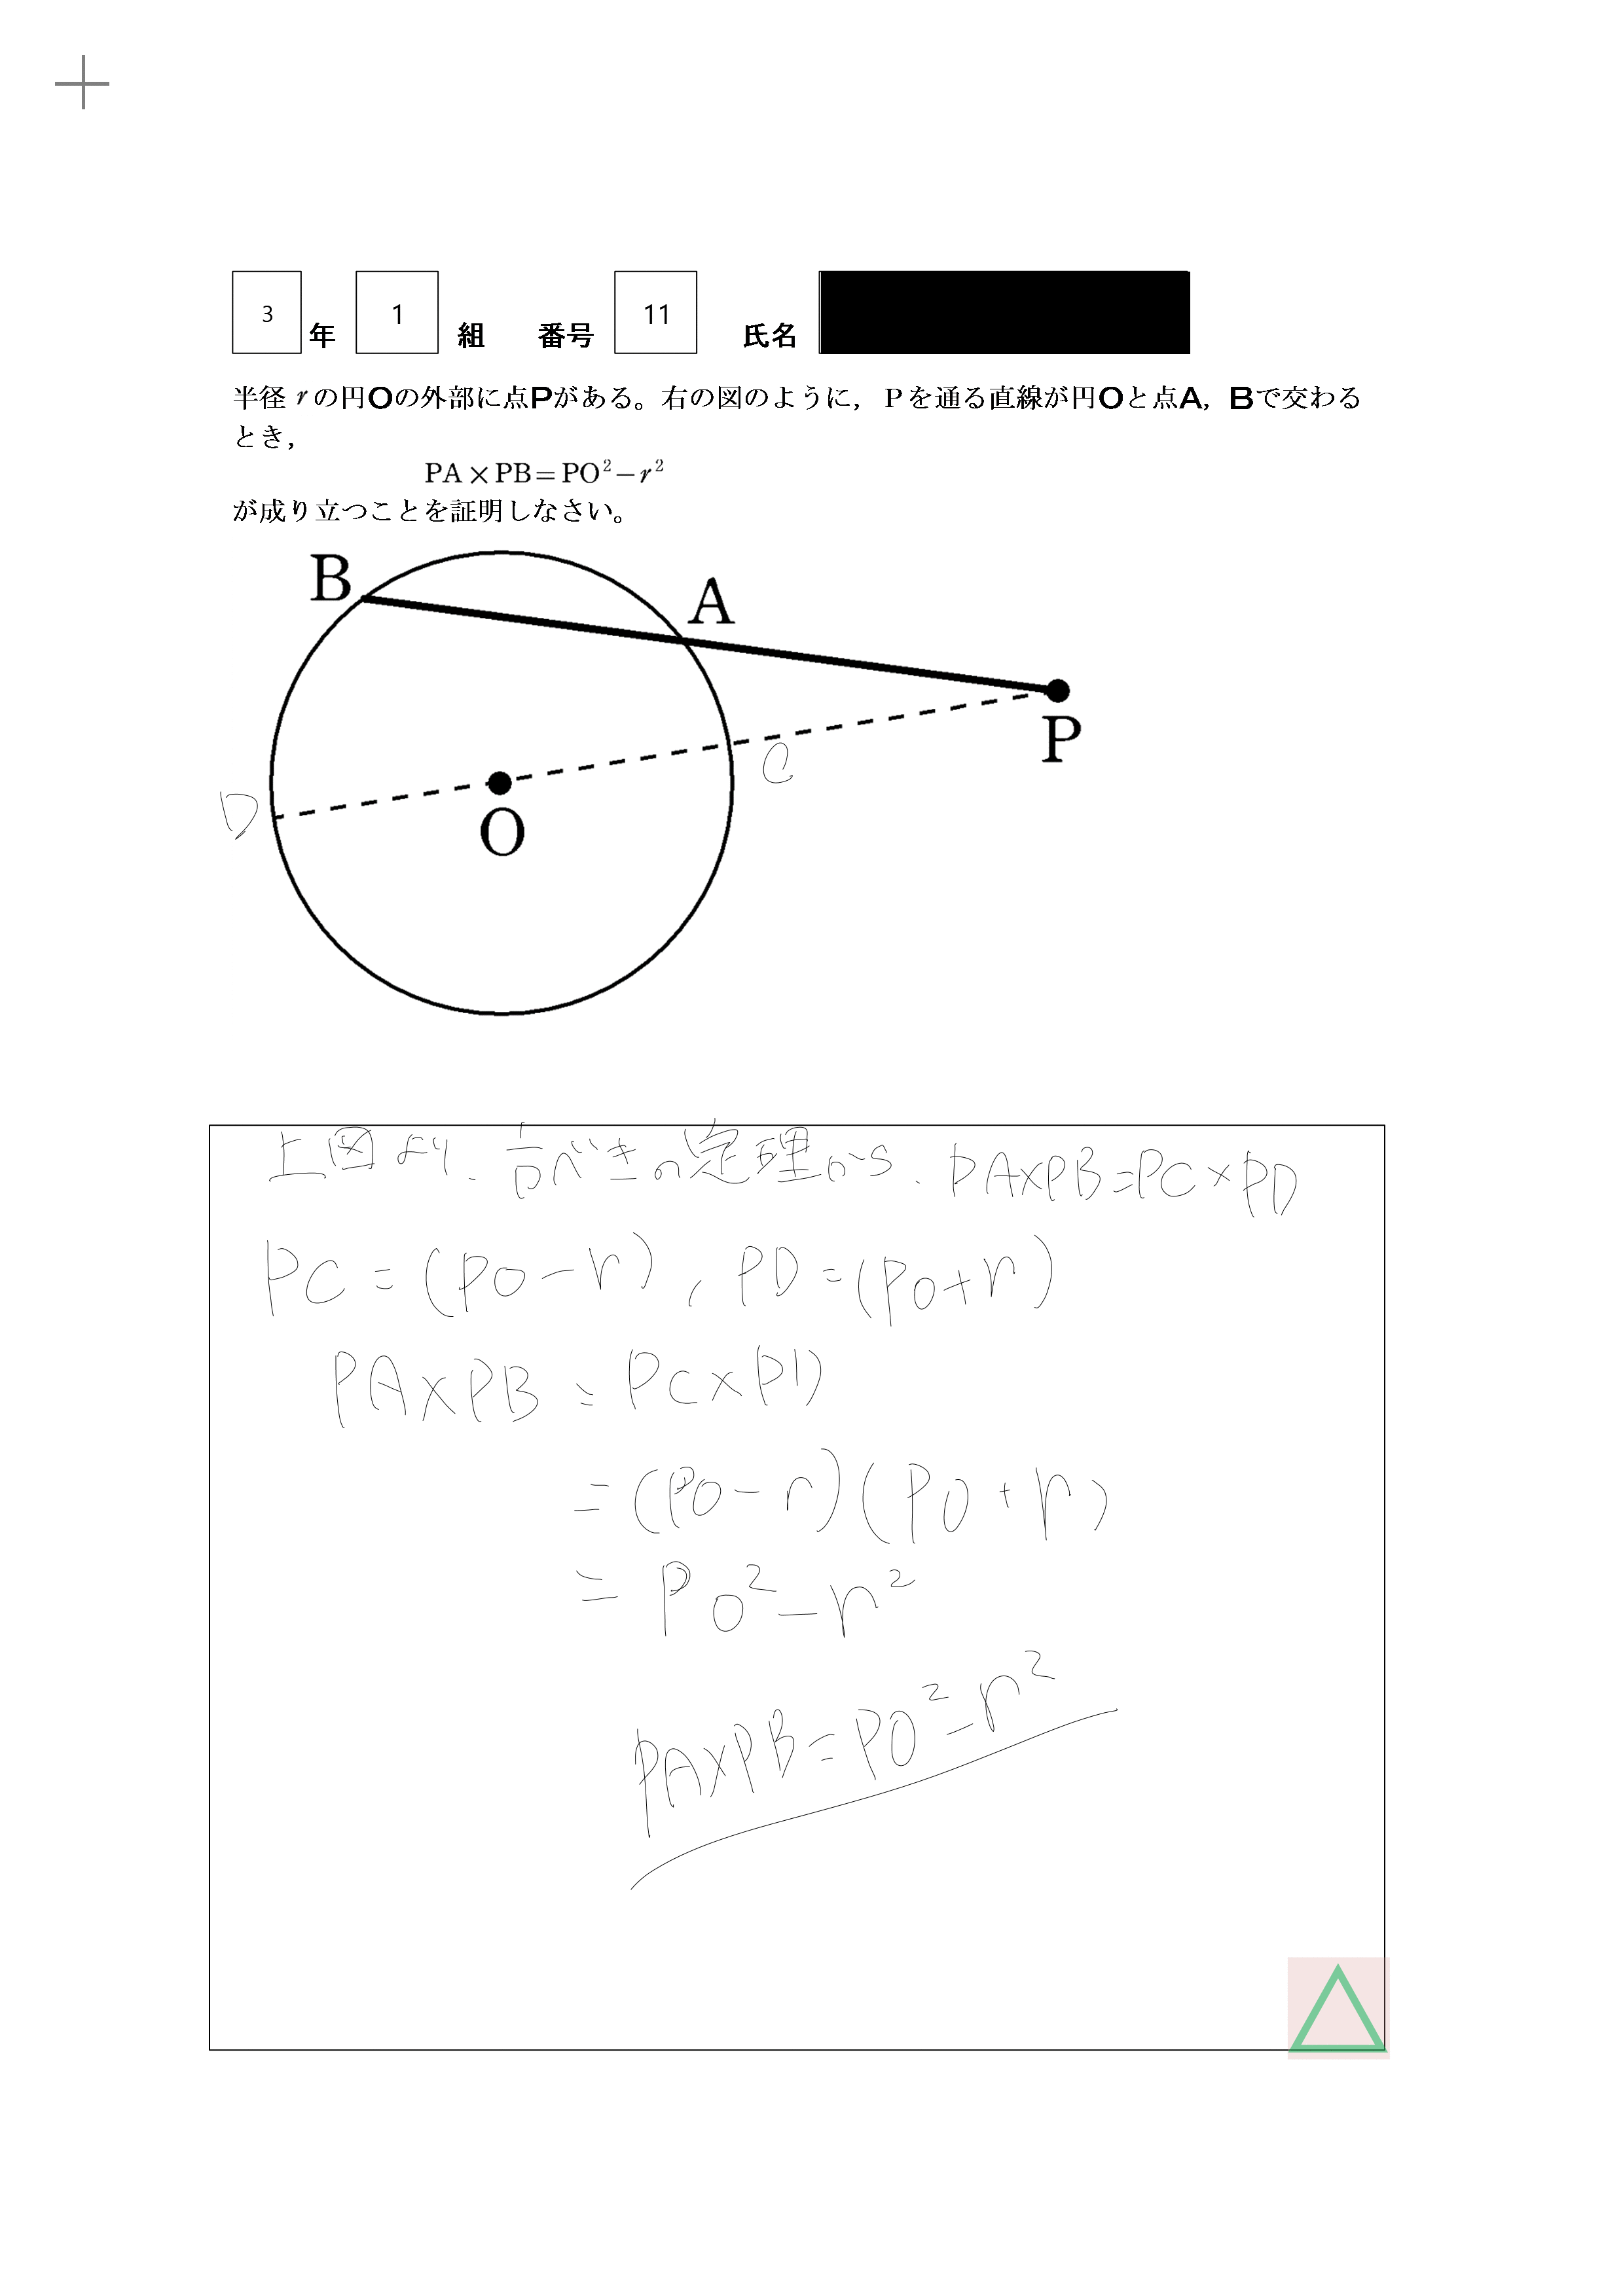 3 年 1 組 番号 11 氏名
半径rの円Oの外部に点Pがある。右の図のように，Pを通る直線が円Oと点A，Bで交わる
とき，
PA×PB=PO²−r²
が成り立つことを証明しなさい。
B
A
P
C
D
O
上図より、方べきの定理から、PA×PB=PC×PD
PC=(PO−r)，PD=(PO+r)
PA×PB=PC×PD
=(PO−r)(PO+r)
=PO²−r²
PA×PB=PO²−r²